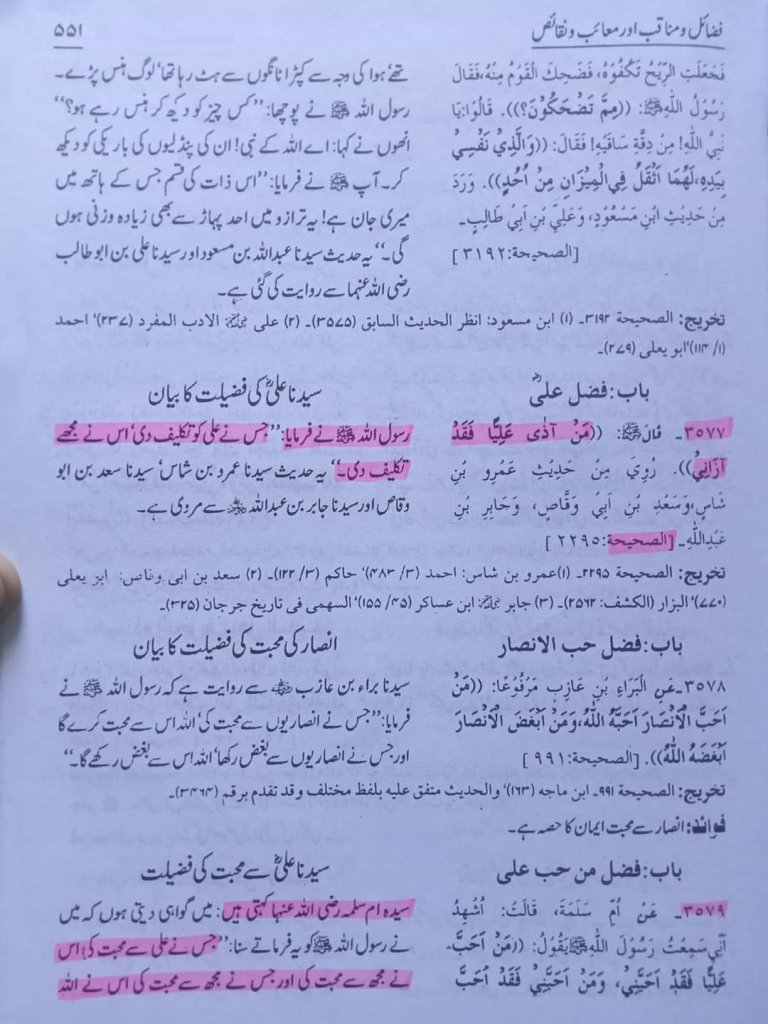 فضائل ومناقب اور معائب ونقائص
۵۵۱
فَجَعَلَتِ الرِّيْحُ تَكْفُوْهُ، فَضَحِكَ الْقَوْمُ مِنْهُ، فَقَالَ
رَسُوْلُ اللّٰهِ ﷺ: ((مِمَّ تَضْحَكُوْنَ؟)). قَالُوْا: يَا
نَبِيَّ اللّٰهِ! مِنْ دِقَّةِ سَاقَيْهِ! فَقَالَ: ((وَالَّذِيْ نَفْسِيْ
بِيَدِهِ، لَهُمَا أَثْقَلُ فِي الْمِيْزَانِ مِنْ أُحُدٍ)). وَرَدَ
مِنْ حَدِيْثِ ابْنِ مَسْعُوْدٍ، وَعَلِيِّ بْنِ أَبِيْ طَالِبٍ۔
[الصحيحة:۳۱۹۲]
تھے، ہوا کی وجہ سے کپڑا ٹانگوں سے ہٹ رہا تھا، لوگ ہنس پڑے۔
رسول اللہ ﷺ نے پوچھا: ”کس چیز کو دیکھ کر ہنس رہے ہو؟“
انھوں نے کہا: اے اللہ کے نبی! ان کی پنڈلیوں کی باریکی کو دیکھ
کر۔ آپ ﷺ نے فرمایا: ”اس ذات کی قسم جس کے ہاتھ میں
میری جان ہے! یہ ترازو میں احد پہاڑ سے بھی زیادہ وزنی ہوں
گی۔“ یہ حدیث سیدنا عبداللہ بن مسعود اور سیدنا علی بن ابو طالب
رضی اللہ عنہما سے روایت کی گئی ہے۔
تخریج: الصحيحة ۳۱۹۲۔ (۱) ابن مسعود: انظر الحديث السابق (۳۵۷۵)۔ (۲) علی ؓ الادب المفرد (۲۳۷)، احمد
(۱/ ۱۱۴)، ابو یعلی (۲۷۹)۔
باب: فضل علی ؓ
۳۵۷۷۔ قَالَ ﷺ: ((مَنْ آذٰى عَلِيًّا فَقَدْ
آزَانِيْ)). رُوِيَ مِنْ حَدِيْثِ عَمْرِو بْنِ
شَاسٍ، وَسَعْدِ بْنِ أَبِيْ وَقَّاصٍ، وَجَابِرِ بْنِ
عَبْدِاللّٰهِ۔ [الصحيحة:۲۲۹۵]
سیدنا علی ؓ کی فضیلت کا بیان
رسول اللہ ﷺ نے فرمایا: ”جس نے علی کو تکلیف دی، اس نے مجھے
تکلیف دی۔“ یہ حدیث سیدنا عمرو بن شاس، سیدنا سعد بن ابو
وقاص اور سیدنا جابر بن عبداللہ ؓ سے مروی ہے۔
تخریج: الصحيحة ۲۲۹۵۔ (۱) عمرو بن شاس: احمد (۳/ ۴۸۳)، حاکم (۳/ ۱۲۲)۔ (۲) سعد بن ابی وقاص: ابو یعلی
(۷۷۰)، البزار (الکشف: ۲۵۶۲)۔ (۳) جابر ؓ: ابن عساکر (۴۵/ ۱۵۵)، السهمی فی تاریخ جرجان (۳۲۵)۔
باب: فضل حب الانصار
۳۵۷۸۔ عَنِ الْبَرَاءِ بْنِ عَازِبٍ مَرْفُوْعًا: ((مَنْ
أَحَبَّ الْأَنْصَارَ أَحَبَّهُ اللّٰهُ، وَمَنْ أَبْغَضَ الْأَنْصَارَ
أَبْغَضَهُ اللّٰهُ)). [الصحيحة:۹۹۱]
انصار کی محبت کی فضیلت کا بیان
سیدنا براء بن عازب ؓ سے روایت ہے کہ رسول اللہ ﷺ نے
فرمایا: ”جس نے انصاریوں سے محبت کی، اللہ اس سے محبت کرے گا
اور جس نے انصاریوں سے بغض رکھا، اللہ اس سے بغض رکھے گا۔“
تخریج: الصحيحة ۹۹۱۔ ابن ماجه (۱۶۳)، والحدیث متفق علیه بلفظ مختلف وقد تقدم برقم (۳۴۶۴)۔
فوائد: انصار سے محبت ایمان کا حصہ ہے۔
باب: فضل من حب علی
۳۵۷۹۔ عَنْ أُمِّ سَلَمَةَ، قَالَتْ: أَشْهَدُ
أَنِّيْ سَمِعْتُ رَسُوْلَ اللّٰهِ ﷺ يَقُوْلُ: ((مَنْ أَحَبَّ
عَلِيًّا فَقَدْ أَحَبَّنِيْ، وَمَنْ أَحَبَّنِيْ فَقَدْ أَحَبَّ
سیدنا علی ؓ سے محبت کی فضیلت
سیدہ ام سلمہ رضی اللہ عنہا کہتی ہیں: میں گواہی دیتی ہوں کہ میں
نے رسول اللہ ﷺ کو یہ فرماتے سنا: ”جس نے علی سے محبت کی، اس
نے مجھ سے محبت کی اور جس نے مجھ سے محبت کی اس نے اللہ